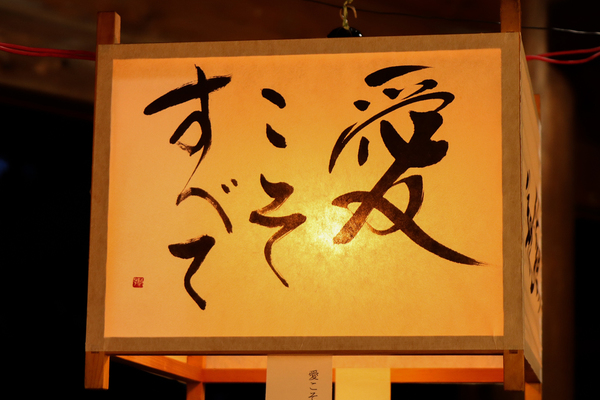 愛
こそ
すべて
愛こそ